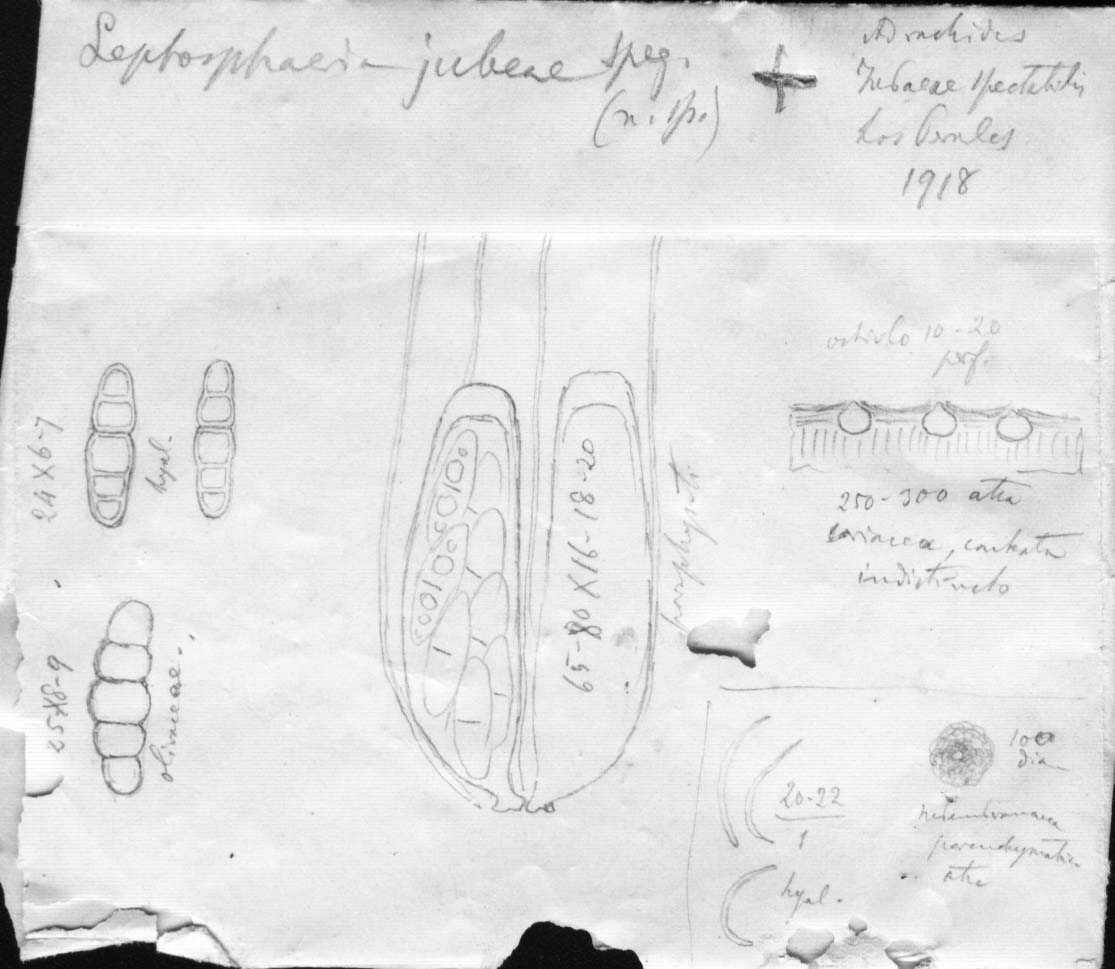 Leptosphaeria jubeae Speg.
(n. sp.)
Rachidis
Jubaeae spectabilis
Los Perales
1918
ostiolo 10-20
perf.
24 X 6-7
hyal.
65-80 X 16-18-20
paraphysati
250-300 atra
coriacea, contextu
indistincto
25 X 8-9
olivaceae.
20-22
1
hyal.
100
dia
membranacea
parenchymatica
atra